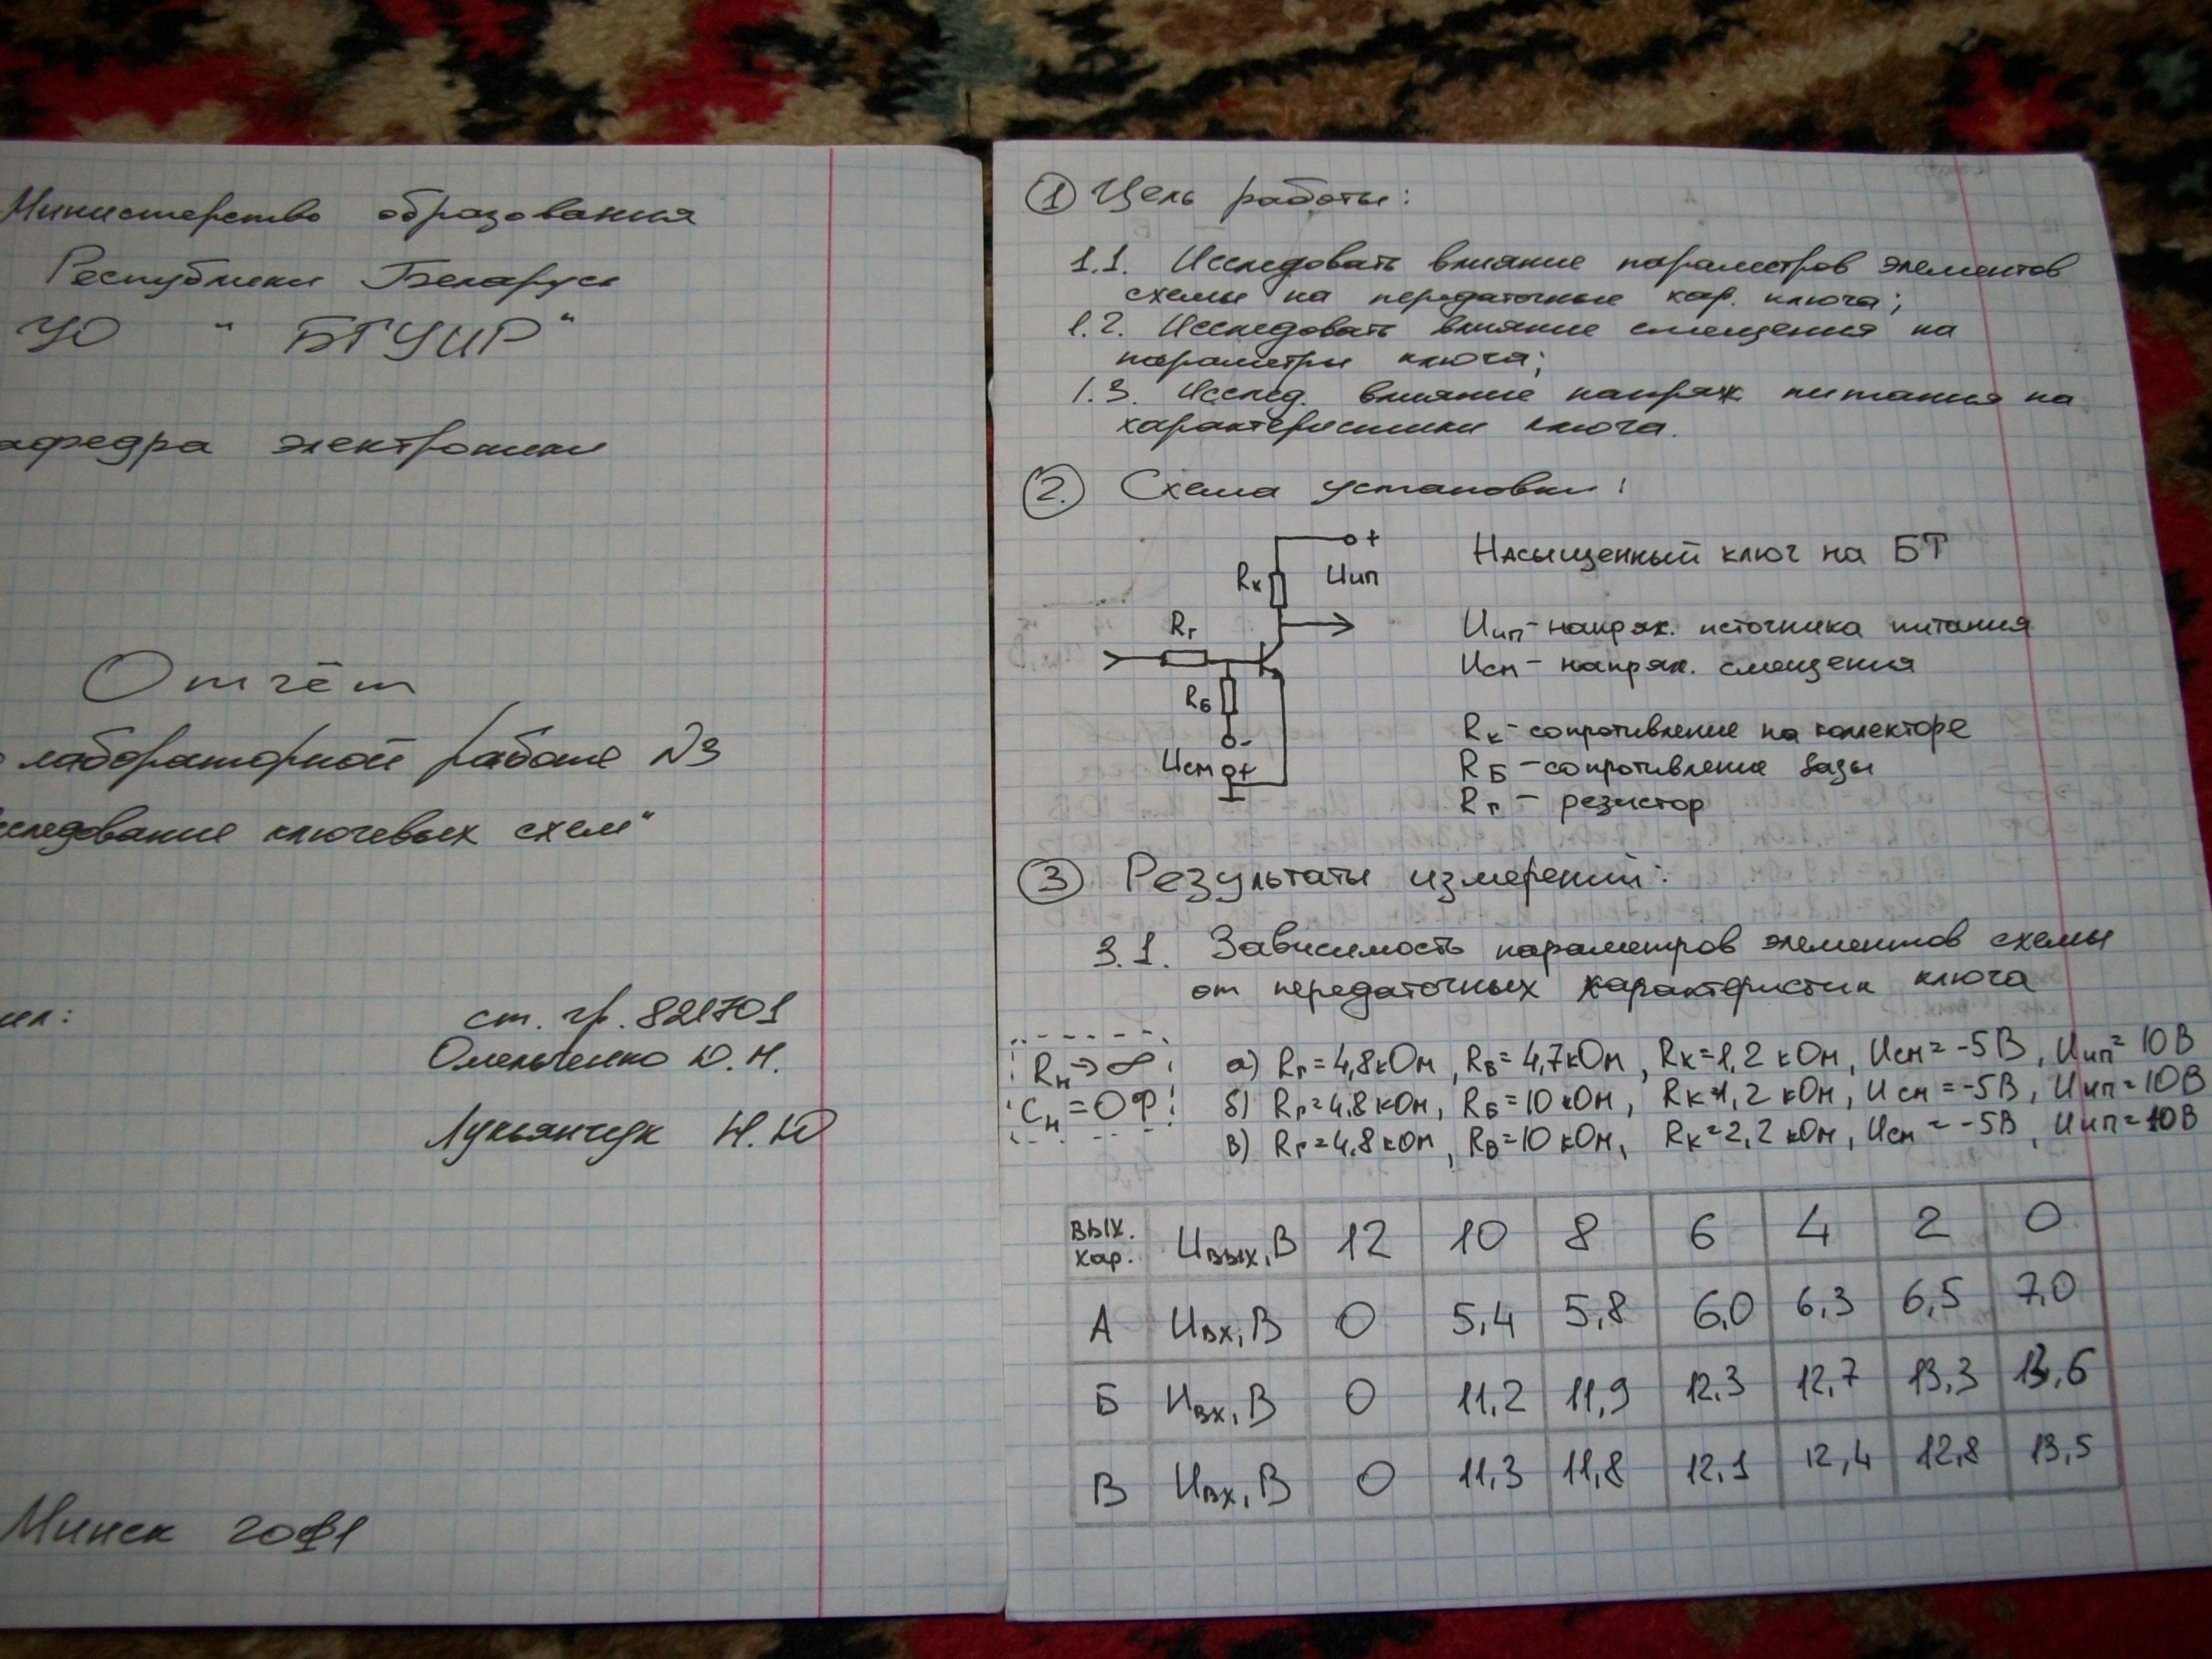 Министерство образования
Республики Беларусь
УО "БГУИР"
афедра электроники
Отчёт
лабораторной работе N3
следование ключевых схем"
ил:
ст. гр. 821701
Омельченко Ю.Н.
Лукьянчук И.Ю
Минск 2011
1 Цель работы:
1.1. Исследовать влияние параметров элементов
схемы на передаточные хар. ключа;
1.2. Исследовать влияние смещения на
параметры ключа;
1.3. Исслед. влияние напряж питания на
характеристики ключа.
2. Схема установки:
Rк Uип +
Rг
RБ
-
Uсм +
Насыщенный ключ на БТ
Uип - напряж. источника питания
Uсм - напряж. смещения
Rк - сопротивление на коллекторе
RБ - сопротивление базы
Rг - резистор
3 Результаты измерений:
3.1. Зависимость параметров элементов схемы
от передаточных характеристик ключа
Rн → ∞
Cн = 0Ф
а) Rг = 4,8кОм, RБ = 4,7кОм, Rк = 1,2 кОм, Uсм = -5В, Uип = 10В
б) Rг = 4,8кОм, RБ = 10 кОм, Rк = 1,2 кОм, Uсм = -5В, Uип = 10В
в) Rг = 4,8кОм, RБ = 10 кОм, Rк = 2,2 кОм, Uсм = -5В, Uип = 10В
вых. хар. Uвых, В 12 10 8 6 4 2 0
А Uвх, В 0 5,4 5,8 6,0 6,3 6,5 7,0
Б Uвх, В 0 11,2 11,9 12,3 12,7 13,3 13,6
В Uвх, В 0 11,3 11,8 12,1 12,4 12,8 13,5